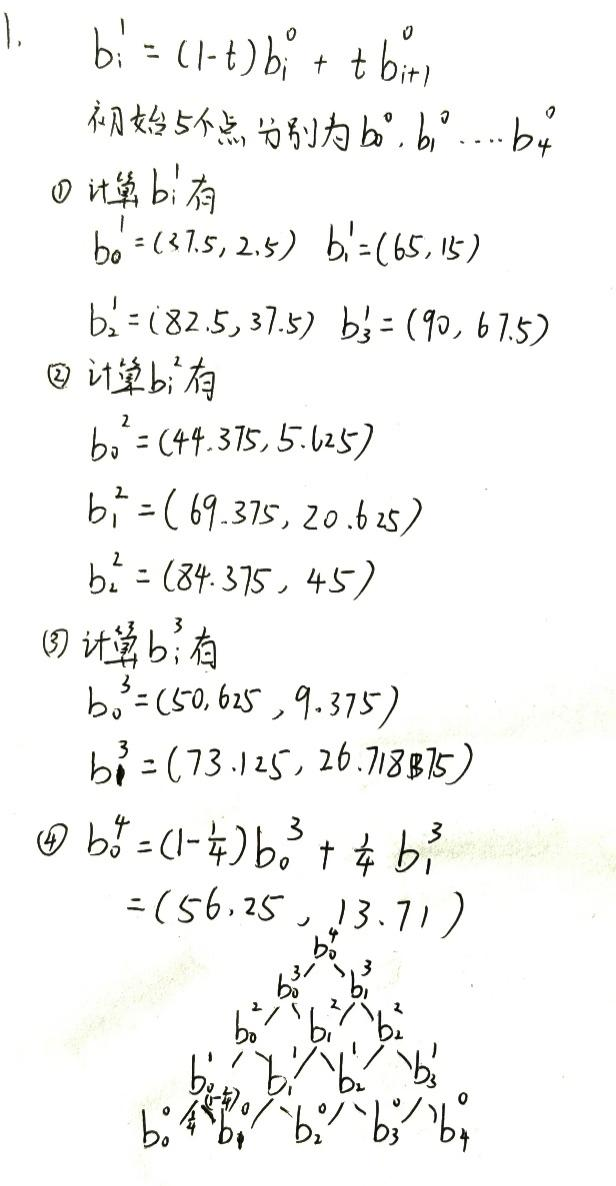 1.
bᵢ¹ = (1-t)bᵢ⁰ + t bᵢ₊₁⁰
初始5个点分别为b₀⁰, b₁⁰ ····· b₄⁰
① 计算bᵢ¹有
b₀¹=(37.5, 2.5) b₁¹=(65,15)
b₂¹=(82.5,37.5) b₃¹=(90, 67.5)
② 计算bᵢ²有
b₀²=(44.375, 5.625)
b₁²=(69.375, 20.625)
b₂²=(84.375, 45)
③ 计算bᵢ³有
b₀³=(50.625, 9.375)
b₁³=(73.125, 26.71875)
④ b₀⁴=(1-1/4)b₀³ + 1/4 b₁³
=(56.25, 13.71)
b₀⁴
b₀³ b₁³
b₀² b₁² b₂²
b₀¹ b₁¹ b₂¹ b₃¹
1/4 (1-1/4)
b₀⁰ b₁⁰ b₂⁰ b₃⁰ b₄⁰